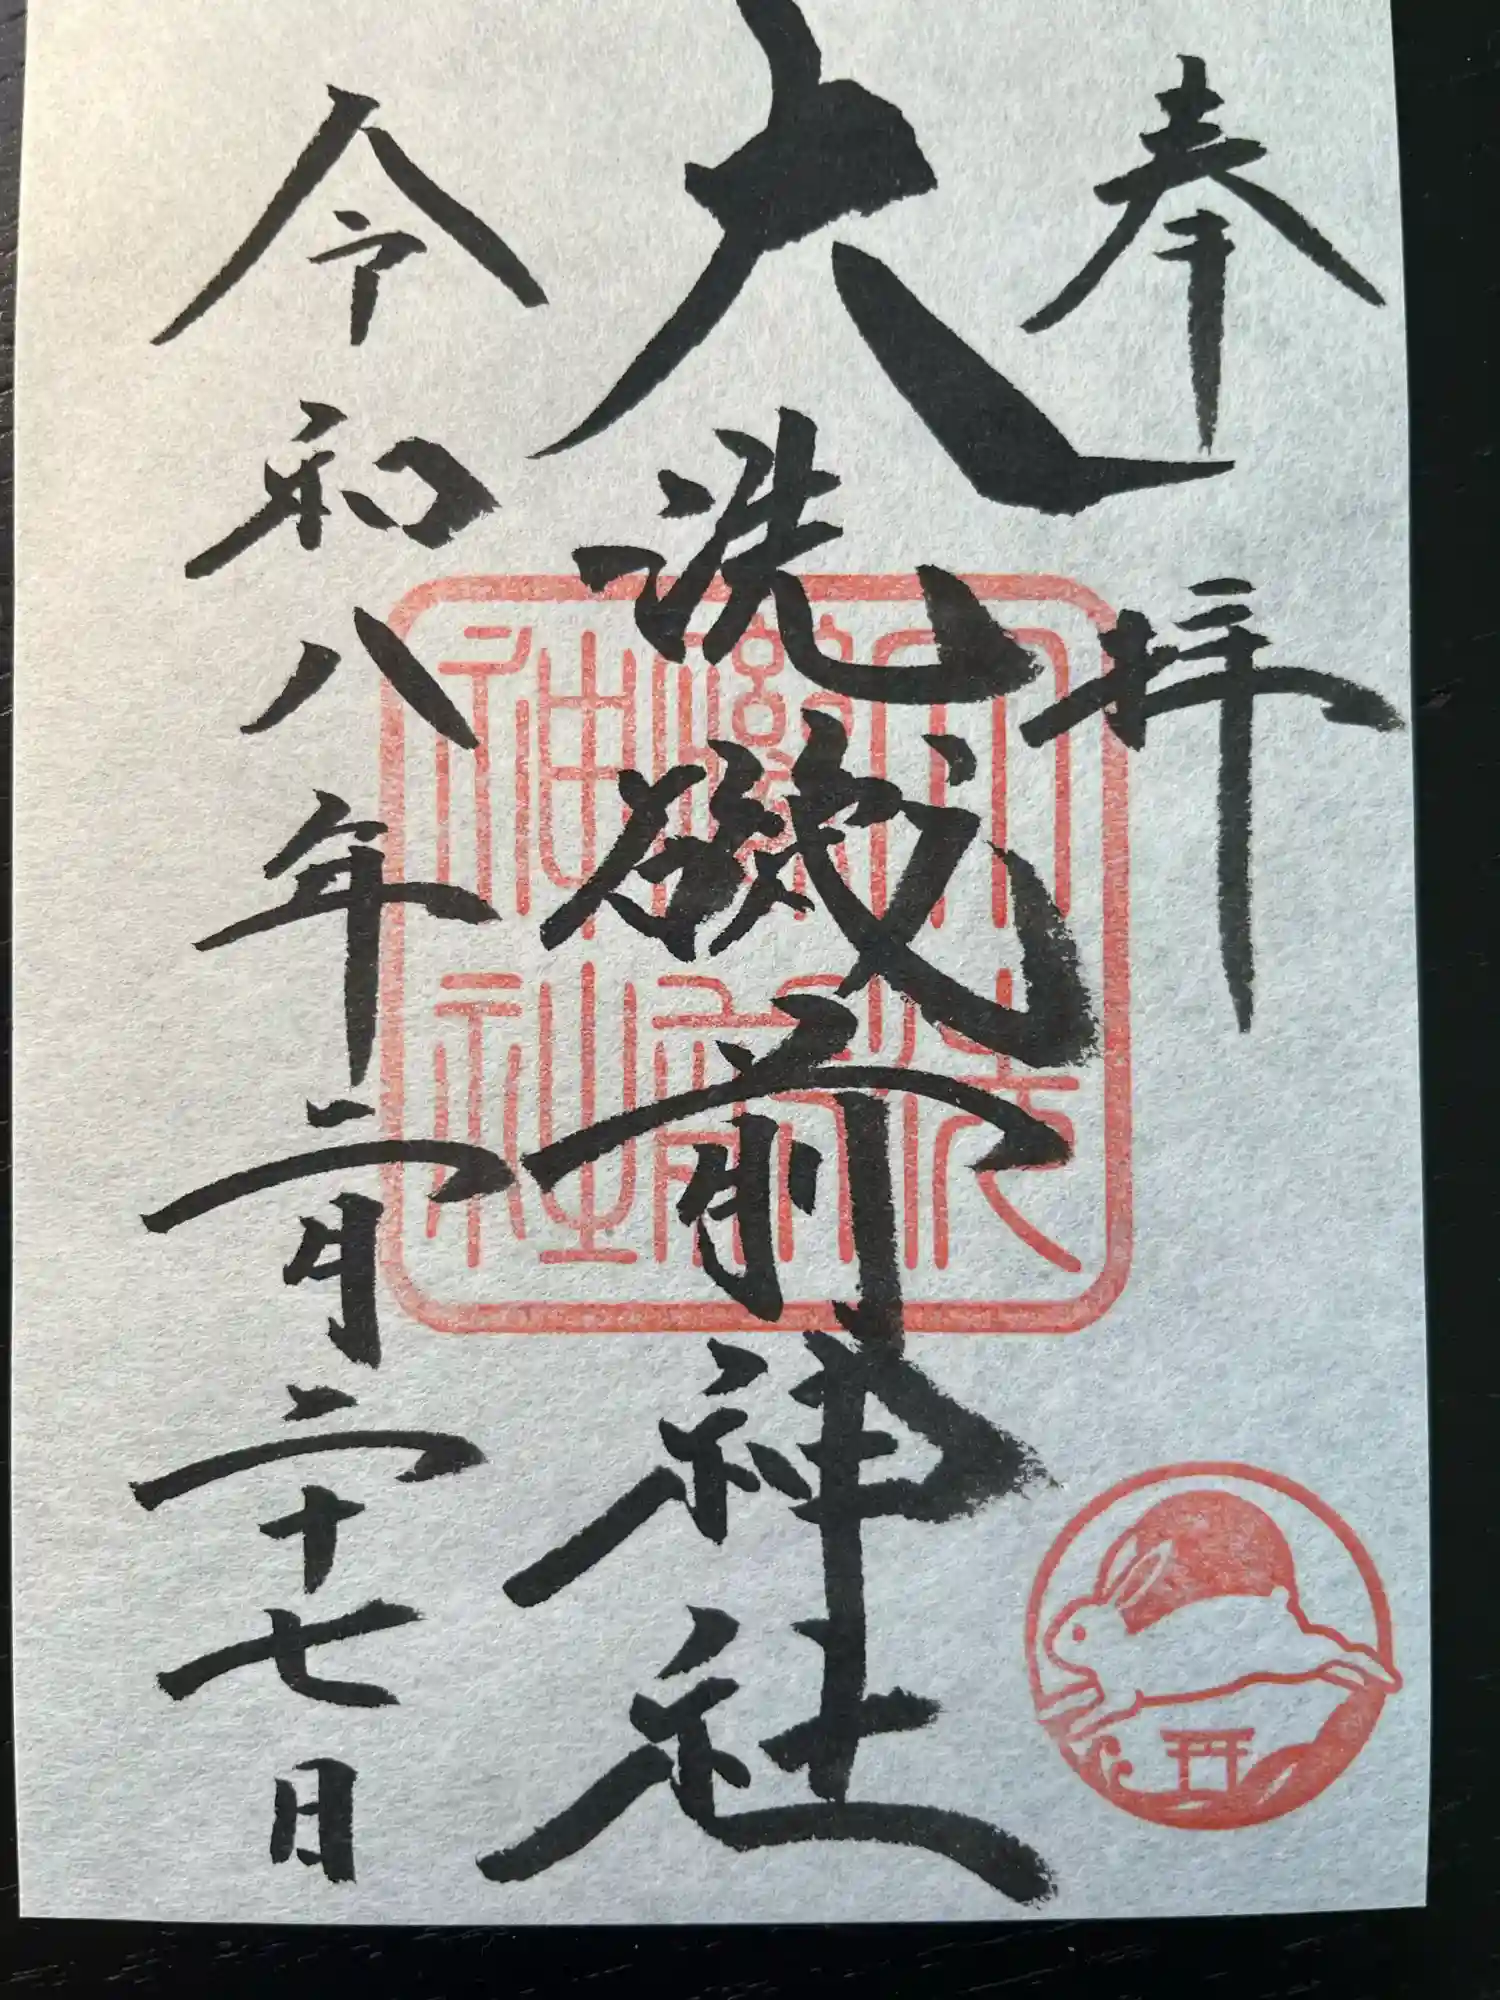 奉拝
大洗磯前神社
大洗磯前神社
令和八年二月二十七日